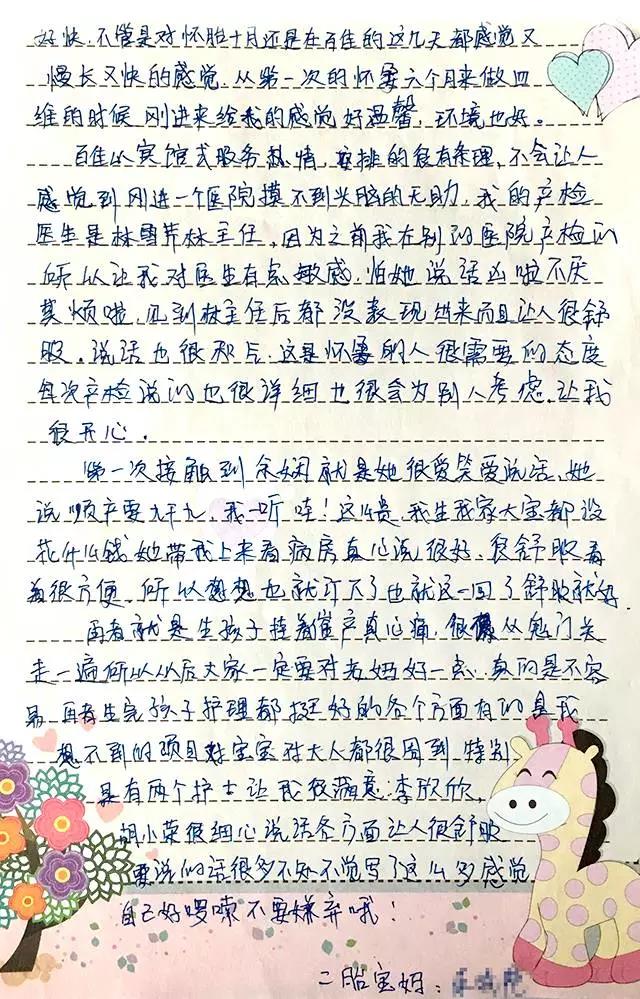 好快,不管是对怀胎十月还是在百佳的这几天都感觉又
慢长又快的感觉.从第一次的怀孕六个月来做四
维的时候刚进来给我的感觉好温馨,环境也好。
百佳以宾馆式服务热情,安排的很有条理,不会让人
感觉到刚进一个医院摸不到头脑的无助.我的产检
医生是林雪芹林主任,因为之前我在别的医院产检的
所以让我对医生有点敏感.怕她说话凶啦不厌
其烦啦,见到林主任后都没表现出来而且让人很舒
服.说话也很和气.这是怀孕的人很需要的态度
每次产检说的也很详细也很会为别人考虑.让我
很开心.
第一次接触到余娴就是她很爱笑爱说话.她
说顺产要九千九,我一听哇!这么贵.我生我家大宝都没
花什么钱她带我上来看病房真心说很好.很舒服看
着很方便.所以想想也就订下了也就这一回了舒服就好
再者就是生孩子挂着催产真心痛,很像从鬼门关
走一遍所以以后大家一定要对老妈好一点.真的是不容
易.再者生完孩子护理都挺好的各个方面有的是我
想不到的项目对宝宝对大人都很周到特别
是有两个护士让我很满意:李欣欣,
胡小荣很细心说话各方面让人很舒服
要说的话很多不知不觉写了这么多感觉
自己好啰嗦不要嫌弃哦!
二胎宝妈: